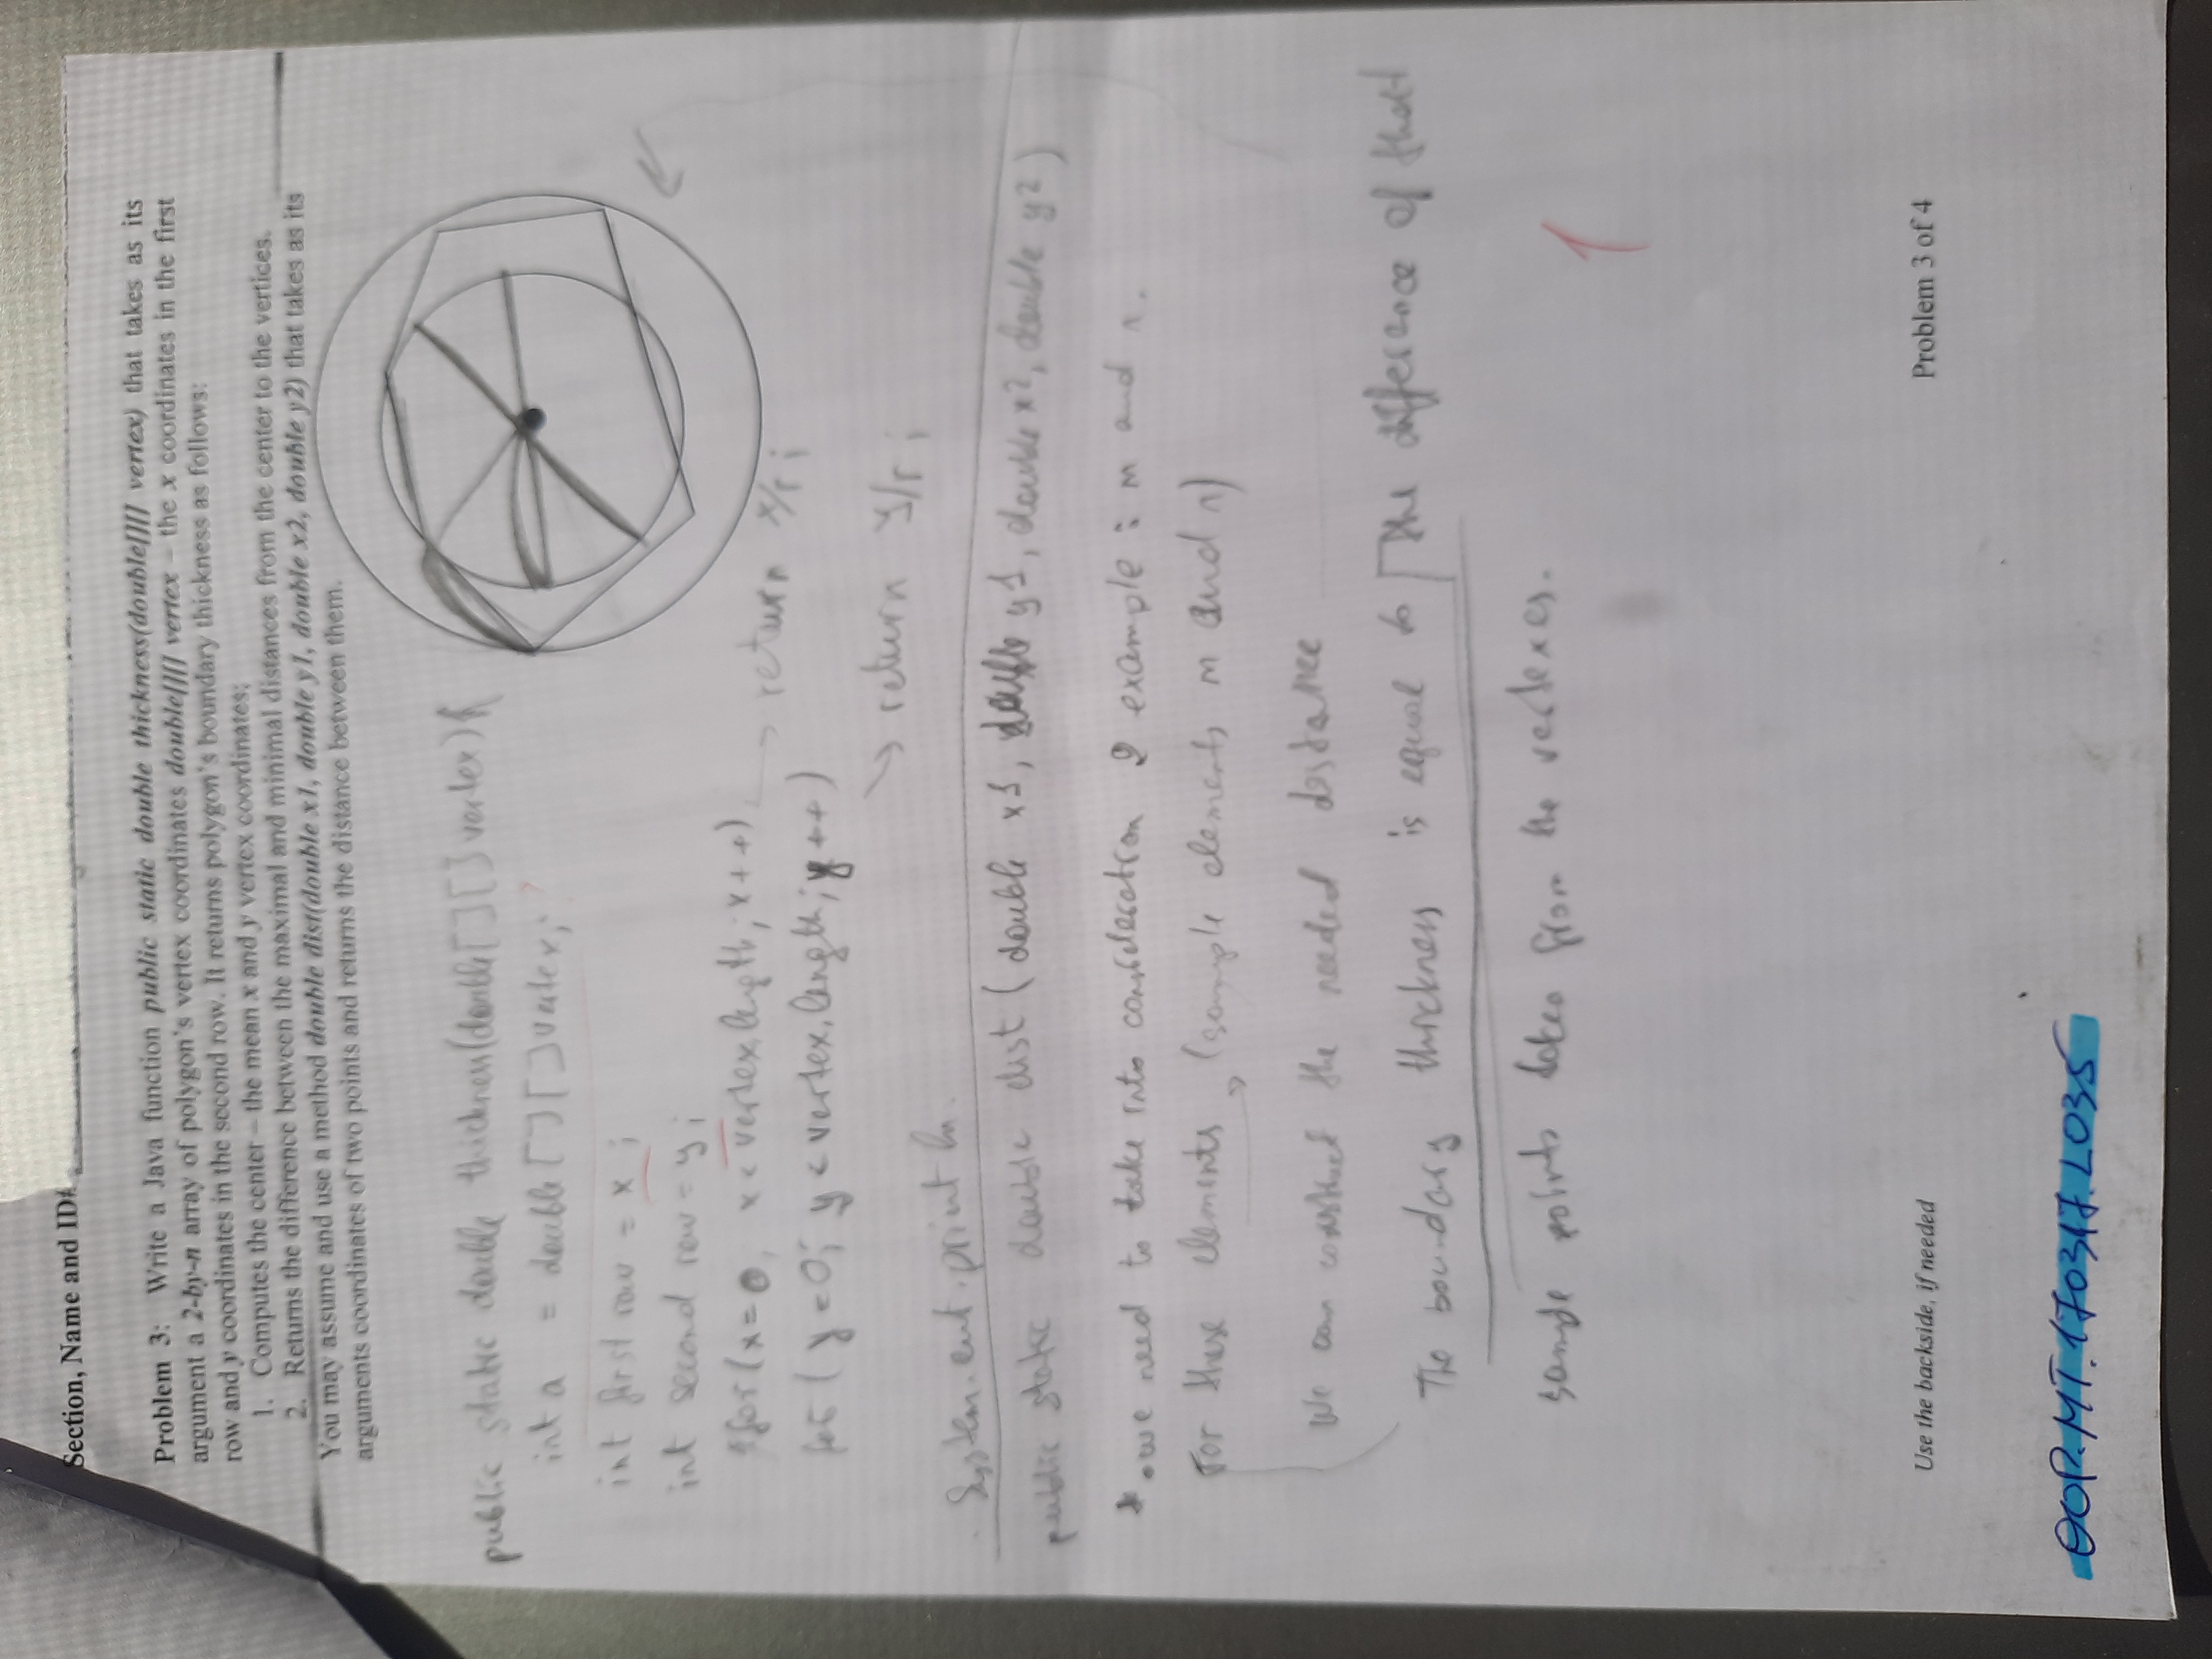 Section, Name and ID#
Problem 3: Write a Java function public static double thickness(double[][] vertex) that takes as its
argument a 2-by-n array of polygon's vertex coordinates double[][] vertex – the x coordinates in the first
row and y coordinates in the second row. It returns polygon's boundary thickness as follows:
1. Computes the center – the mean x and y vertex coordinates;
2. Returns the difference between the maximal and minimal distances from the center to the vertices.
You may assume and use a method double dist(double x1, double y1, double x2, double y2) that takes as its
arguments coordinates of two points and returns the distance between them.
public static double thickness(double[][] vertex){
int a = double[][] vertex; ?
int first row = x ;
int second row = y ;
for (x=0, x < vertex.length; x++)
→ return x/r ;
for ( y=0; y < vertex.length; y++)
→ return y/r ;
System.out.println.
public static double dist ( double x1, double y1, double x2, double y2 )
* we need to take into consideration 2 example : m and n.
For these elements → (sample elements m and n)
We can construct the needed distance
The boundary thickness is equal to the difference of that
sample points taken from the vertexes.
1
Use the backside, if needed
Problem 3 of 4
OOP.MT.170317.L035